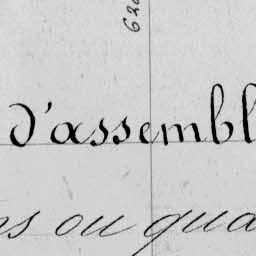 d'assembl
ns ou qua